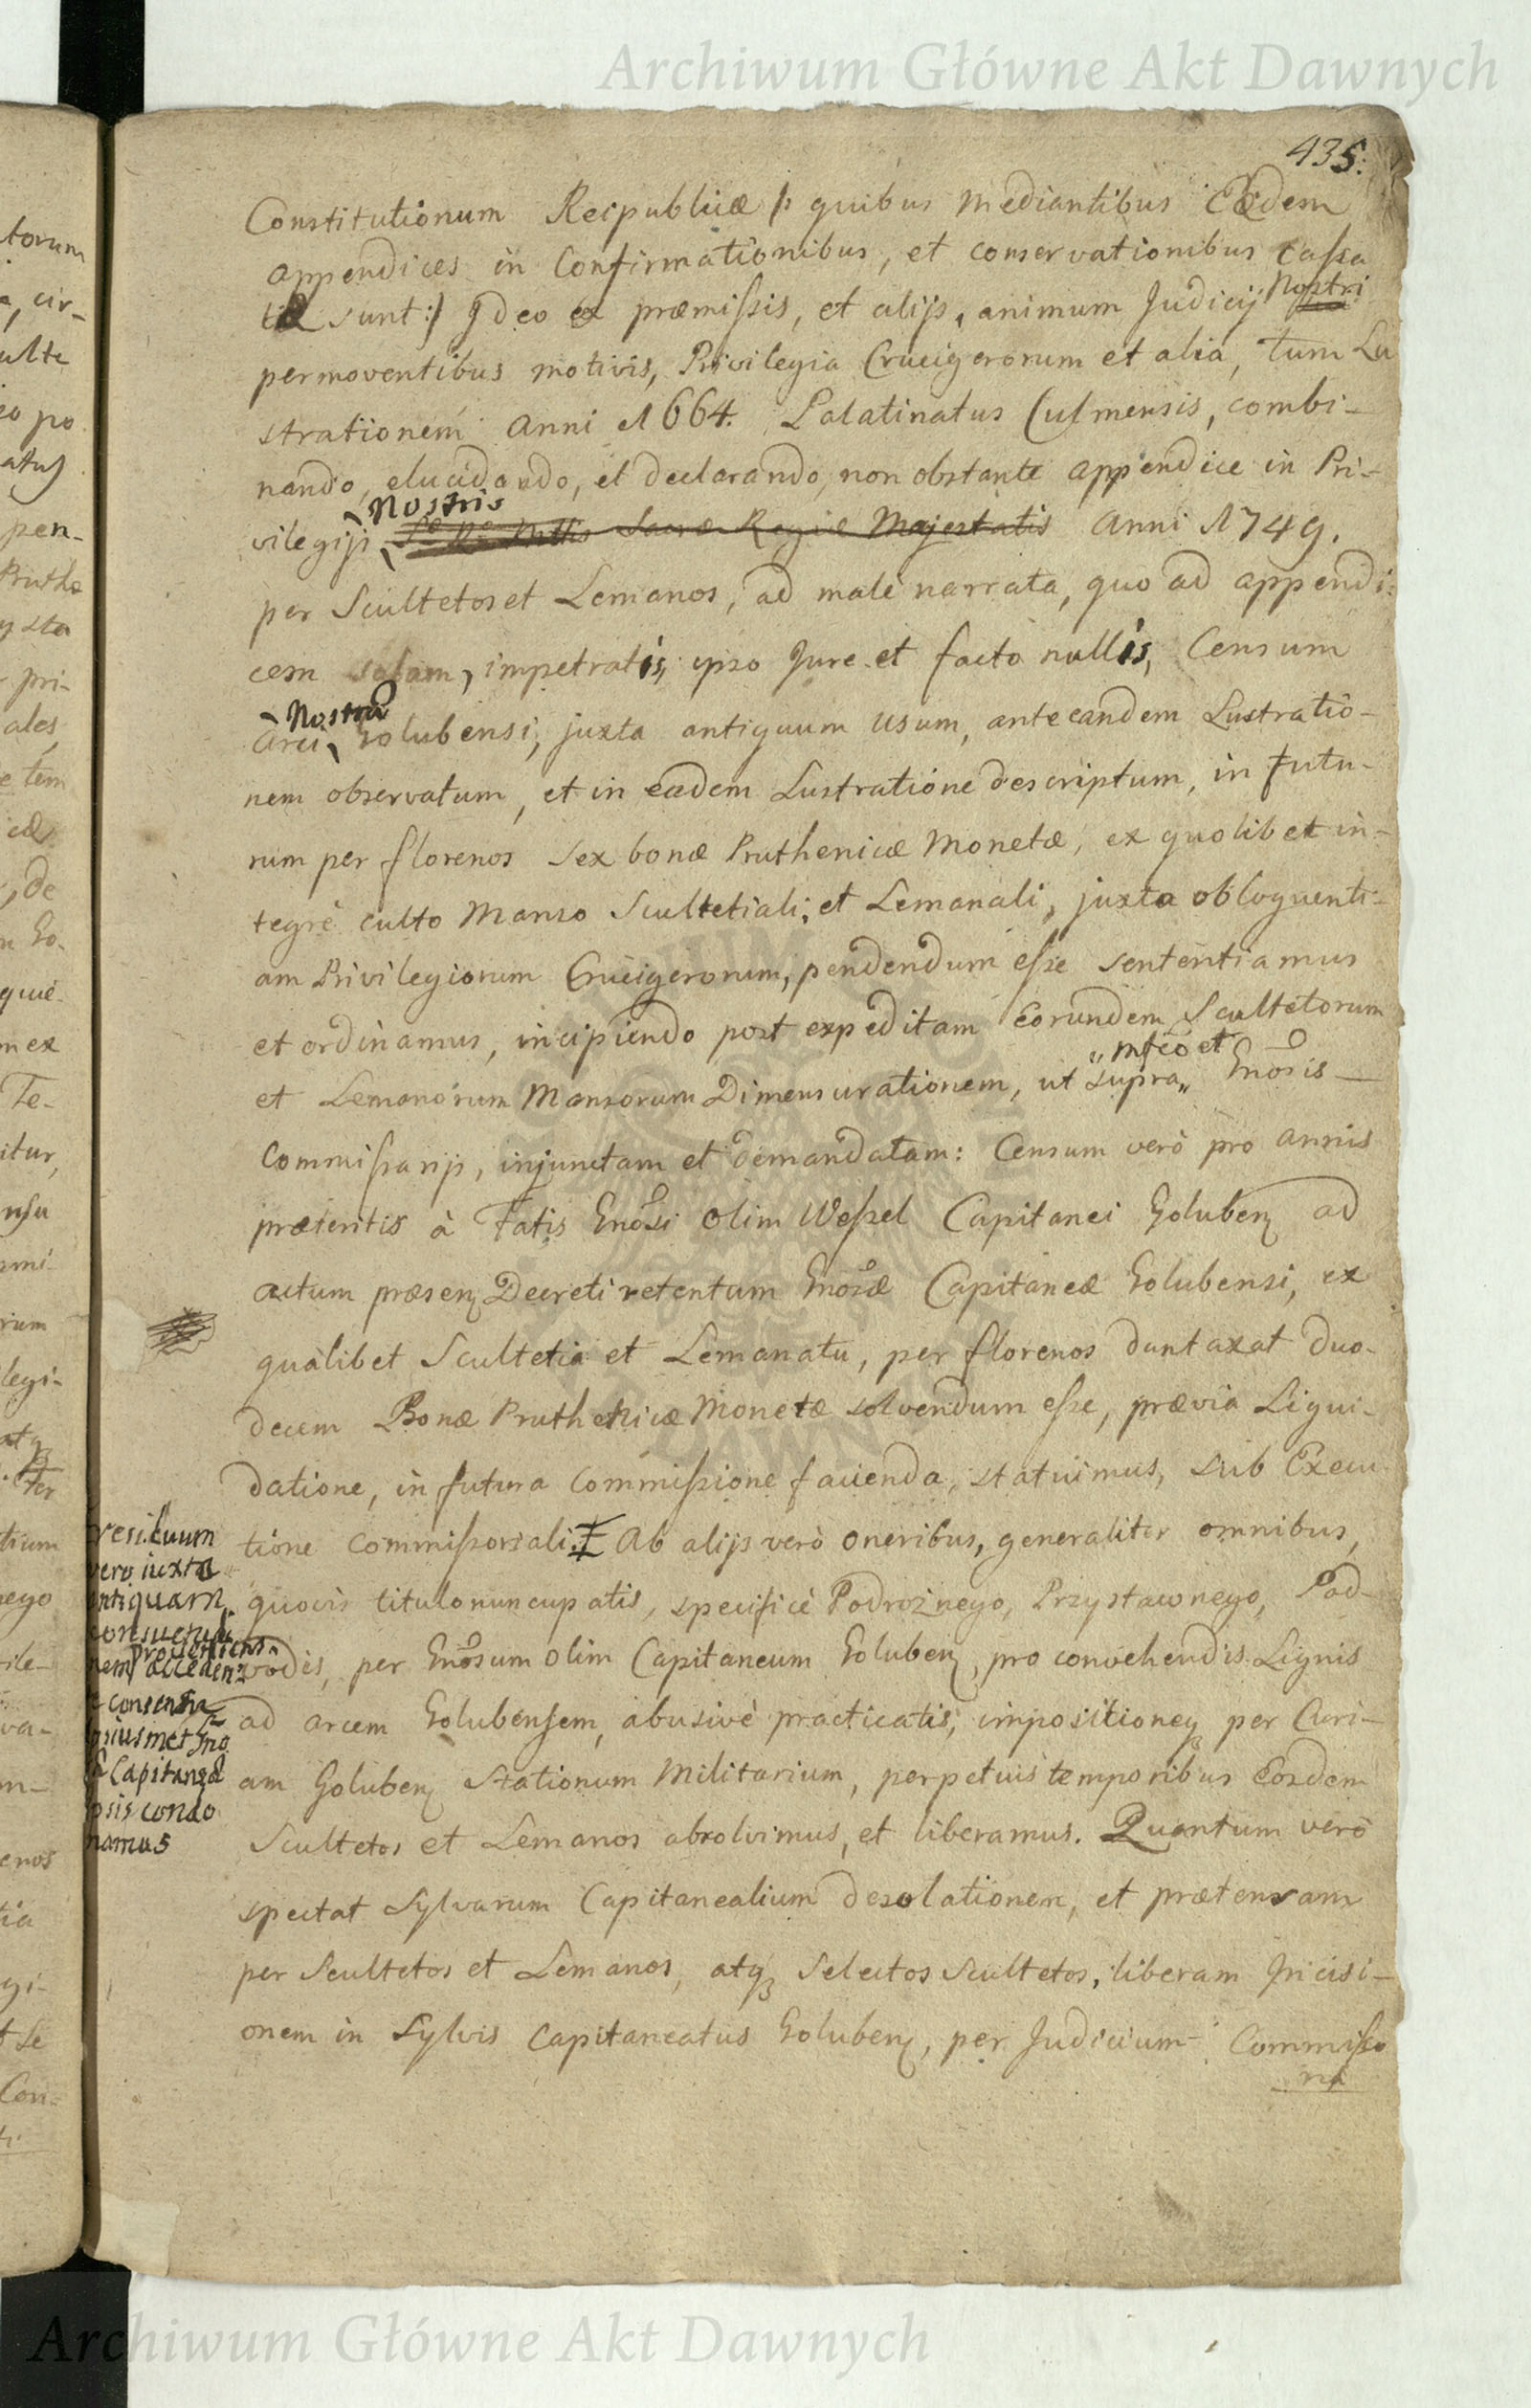 Archiwum Główne Akt Dawnych
435.
Constitutionum Reipublicæ |: quibus mediantibus Eædem
appendices in Confirmationibus, et conservationibus Cassa
tæ sunt :| Ideo ex præmissis, et alijs, animum Judicij Nostri
permoventibus motivis, Privilegia Crucigerorum et alia, tum Lu
strationem Anni 1664. Palatinatus Culmensis, combi-
nando, elucidando, et declarando, non obstante appendice in Pri-
Nostris
vilegijs Sacræ Regiæ Majestatis Anni 1749.
per Scultetos et Lemanos, ad malè narrata, quo ad appendi-
cem solam, impetratis, ipso Jure et facto nullis, Censum
Nostræ
Arci Golubensi, juxta antiquum usum, ante eandem Lustratio-
nem observatum, et in eadem Lustratione descriptum, in futu-
rum per florenos sex bonæ Pruthenicæ Monetæ, ex quolibet in-
tegrè culto Manso Scultetiali, et Lemanali, juxta obloquenti-
am Privilegiorum Crucigerorum, pendendum esse sententiamus
et ordinamus, incipiendo post expeditam Eorundem Scultetorum
Mfcō et
et Lemanorum Mansorum Dimensurationem, ut supra Gnosis
Commissarijs, injunctam et demandatam: Censum verò pro annis
præteritis à Fatis Gnosi olim Wessel Capitanei Goluben ad
actum præsen Decreti retentum Gnosæ Capitaneæ Golubensi, ex
qualibet Scultetia et Lemanatu, per florenos duntaxat duo-
decem Bonæ Pruthenicæ Monetæ solvendum esse, prævia Liqui-
datione, in futura Commissione facienda, statuimus, sub Execu
tione Commissoriali. Ab alijs verò oneribus, generaliter omnibus,
quovis titulo nuncupatis, specificè Podrożnego, Przystawnego, Pod-
wodès, per Gnosum olim Capitaneum Goluben, pro convehendis Lignis
ad arcem Golubensem, abusivè practicatis, impositioneq per Curi-
am Goluben Stationum Militarium, perpetuis temporibus Eosdem
Scultetos et Lemanos absolvimus, et liberamus. Quantum verò
spectat Sylvarum Capitanealium desolationem, et prætensam
per Scultetos et Lemanos, atq Selectos Scultetos, liberam Incisi-
onem in Sylvis Capitaneatus Goluben, per Judicium Commisso
ria
residuum
vero iuxta
antiquam
consuetudi
nem
proveniens
acceden
consensu
ipsiusmet Gno
Capitaneæ
ipsis condo
namus
Archiwum Główne Akt Dawnych